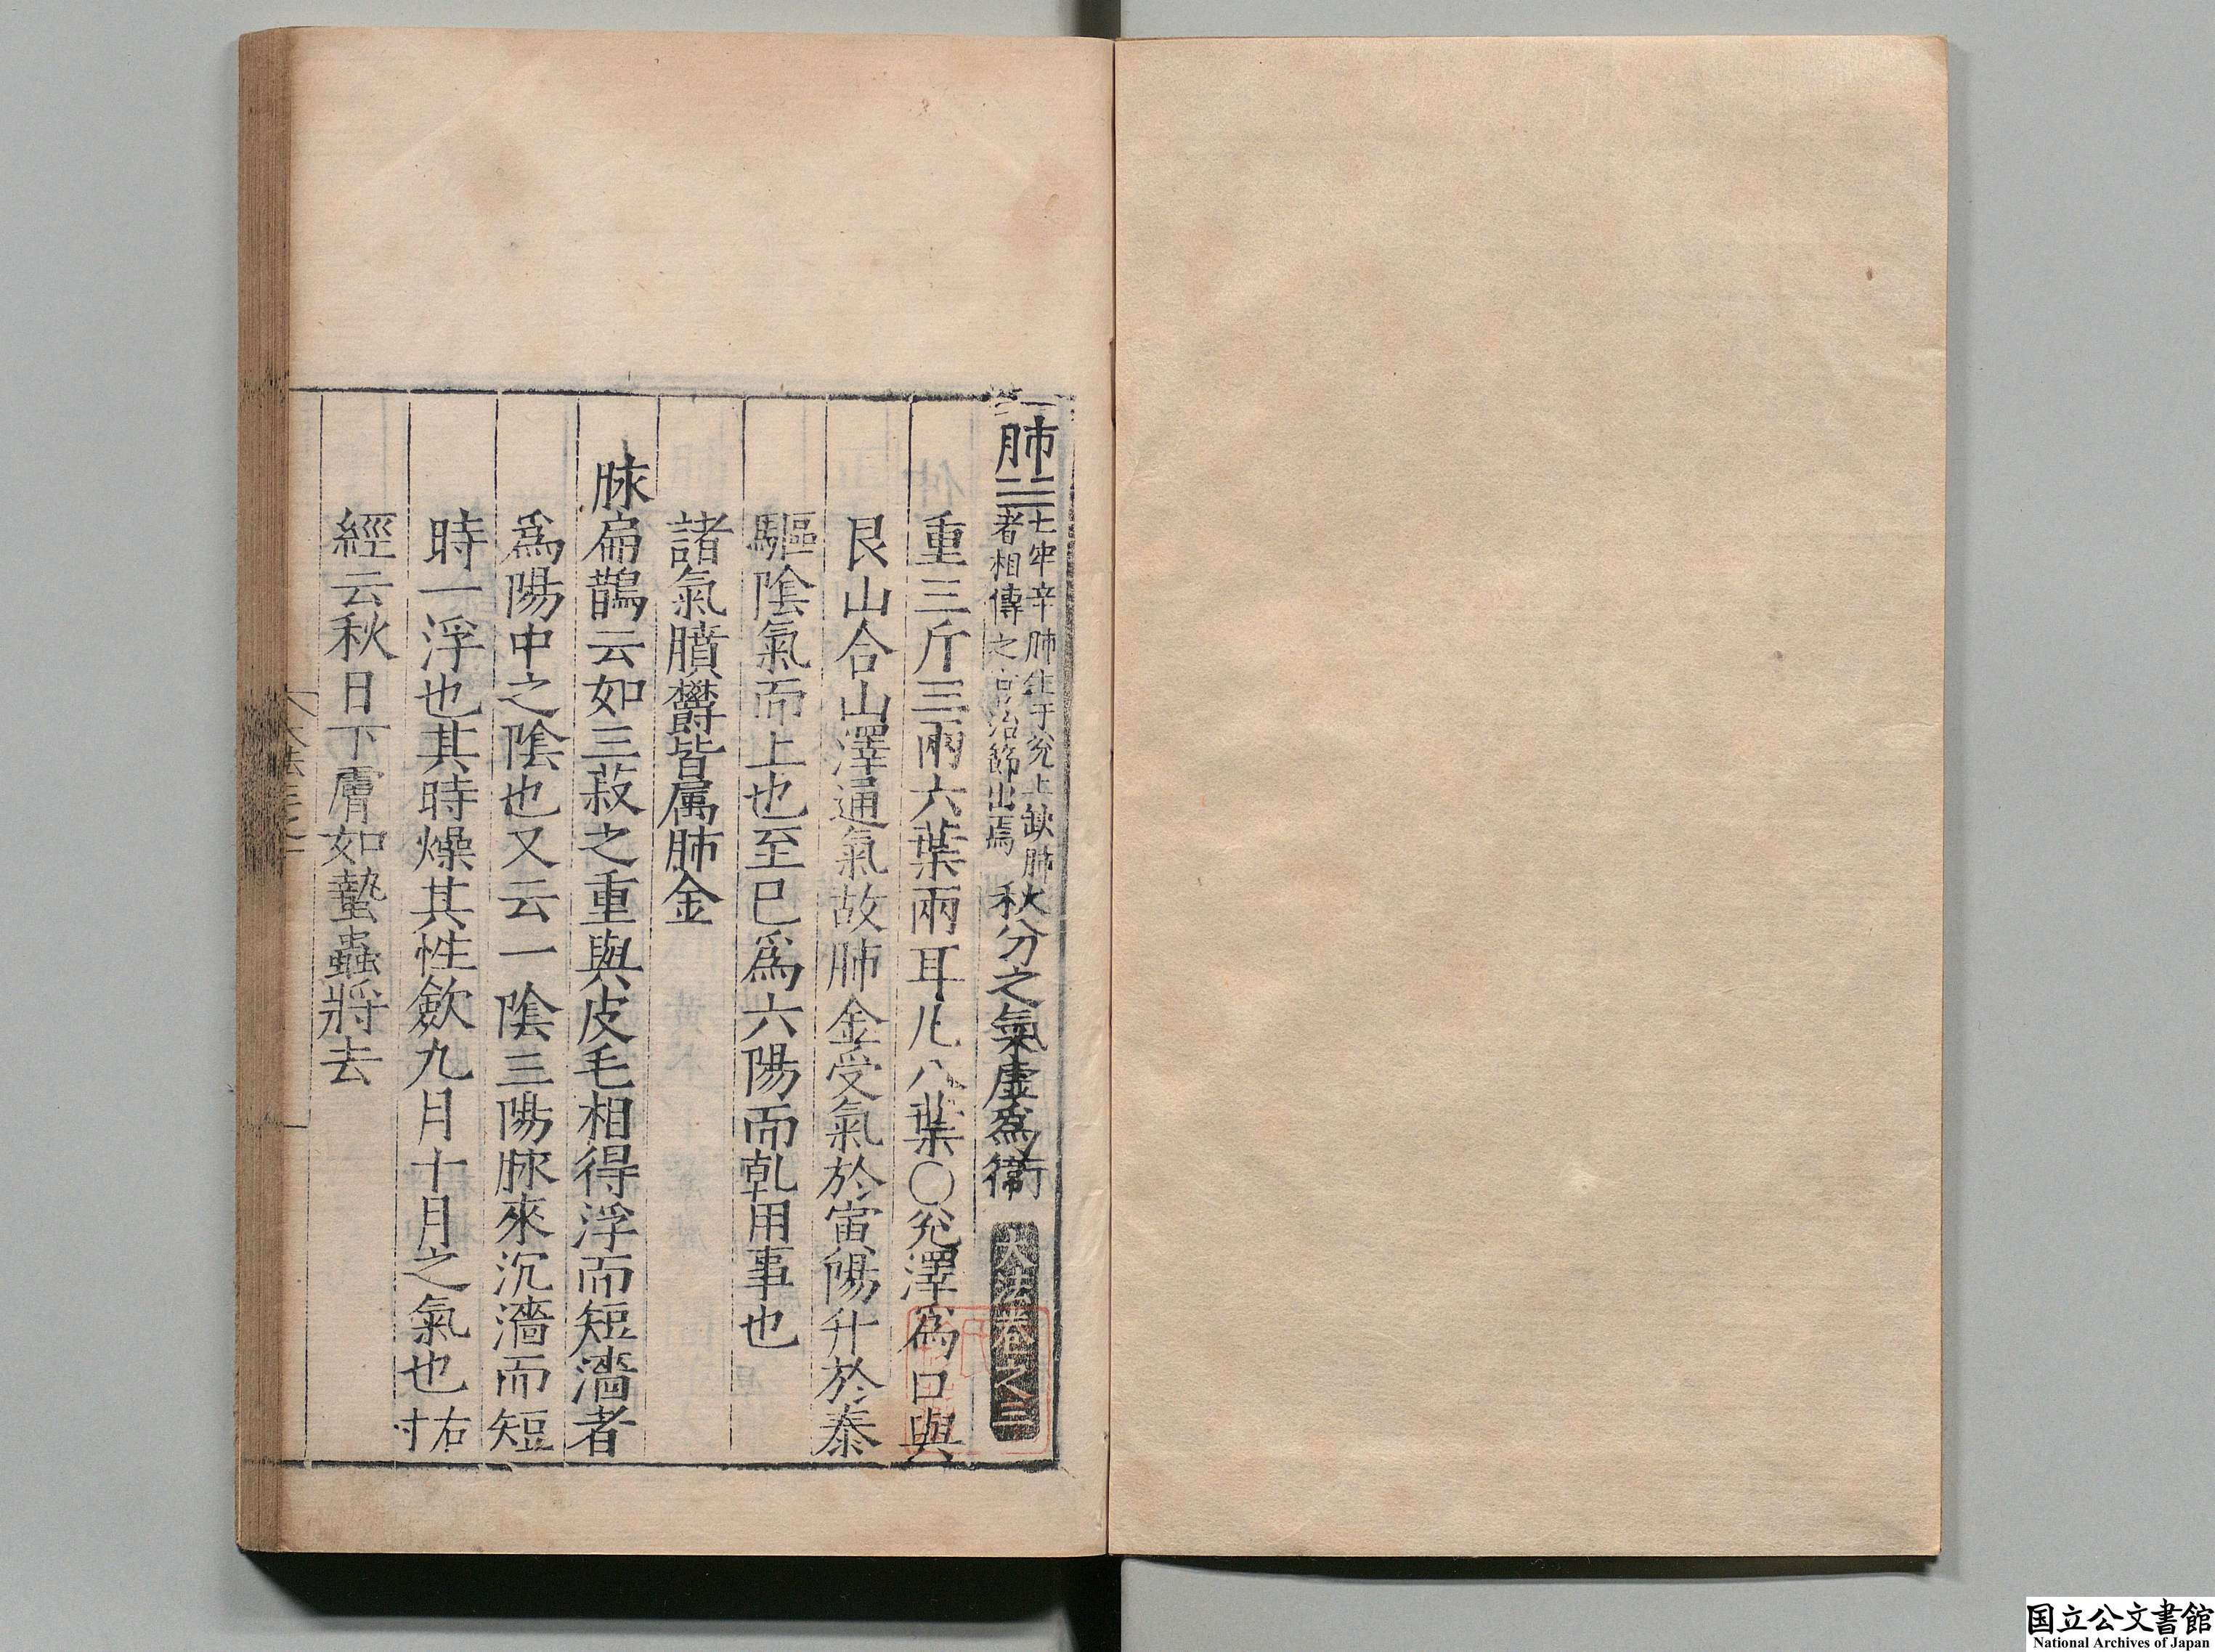 肺☱七牢辛肺生于兊上缺肺
者相傳之官治節出焉
秋分之氣虛爲衛 大法卷之三
重三斤三兩六葉兩耳凡八葉〇兊澤爲口與
艮山合山澤通氣故肺金受氣於寅陽升於泰
驅陰氣而上也至巳爲六陽而乹用事也
諸氣膹欝皆属肺金
脉扁鵲云如三菽之重與皮毛相得浮而短濇者
爲陽中之陰也又云一陰三陽脉來沉濇而短
時一浮也其時燥其性歛九月十月之氣也右寸
經云秋日下膚如蟄蟲將去
大法三之一
国立公文書館
National Archives of Japan